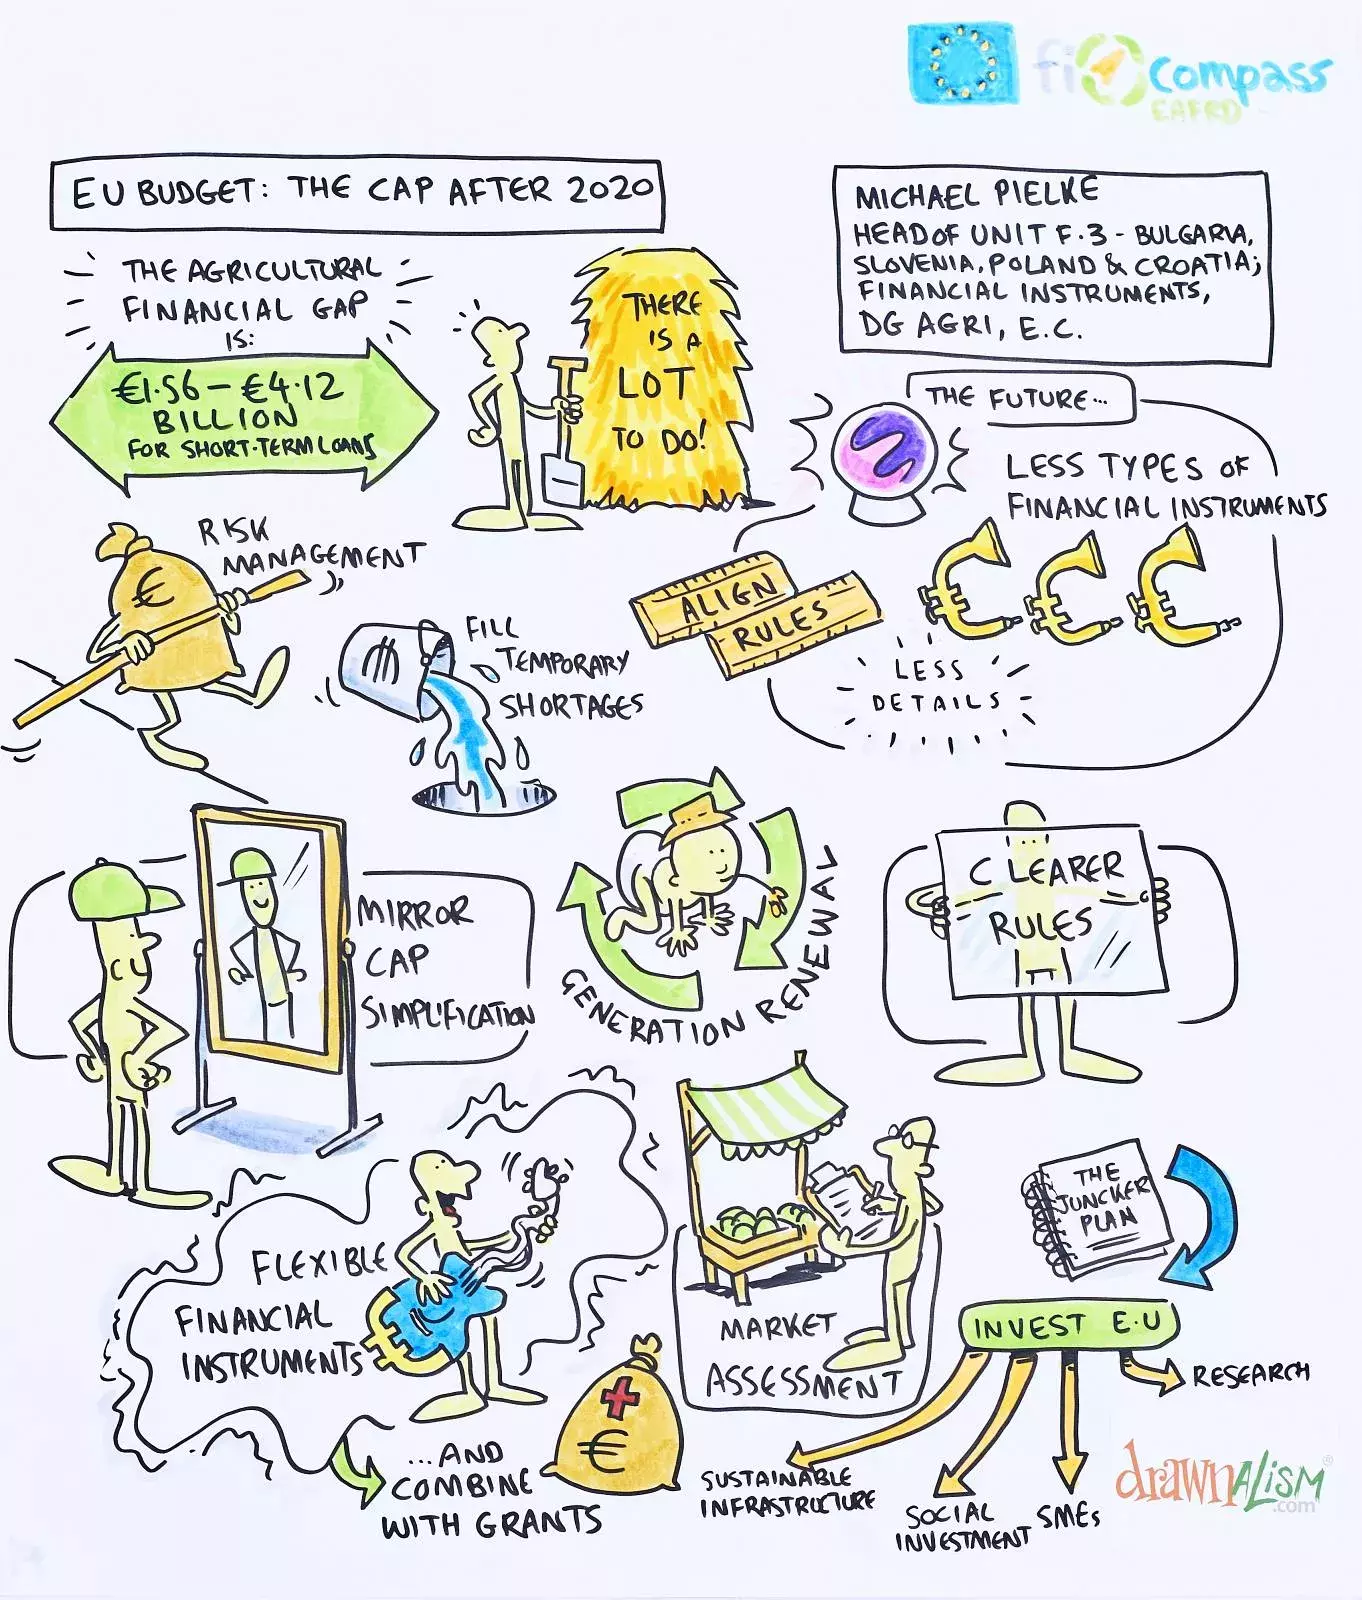 fi compass
EAFRD
EU BUDGET: THE CAP AFTER 2020
MICHAEL PIELKE
HEAD OF UNIT F.3 - BULGARIA,
SLOVENIA, POLAND & CROATIA;
FINANCIAL INSTRUMENTS,
DG AGRI, E.C.
THE AGRICULTURAL
FINANCIAL GAP
IS:
€1.56 - €4.12
BILLION
FOR SHORT-TERM LOANS
THERE
IS A
LOT
TO DO!
THE FUTURE...
LESS TYPES OF
FINANCIAL INSTRUMENTS
ALIGN
RULES
LESS
DETAILS
RISK
MANAGEMENT
€
FILL
TEMPORARY
SHORTAGES
MIRROR
CAP
SIMPLIFICATION
GENERATION RENEWAL
CLEARER
RULES
FLEXIBLE
FINANCIAL
INSTRUMENTS
...AND
COMBINE
WITH GRANTS
€
MARKET
ASSESSMENT
THE
JUNCKER
PLAN
INVEST E.U
RESEARCH
SUSTAINABLE
INFRASTRUCTURE
SOCIAL
INVESTMENT
SMEs
drawnalism®
.com